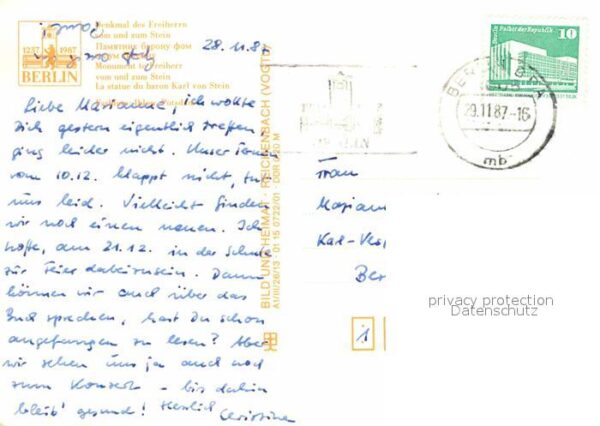 Denkmal des Freiherrn
vom und zum Stein
Памятник барону фом
Monument to Freiherr
vom und zum Stein
La statue du baron Karl von Stein
1237 1987
BERLIN
28.11.87
Liebe Marianne, ich wollte
Dich gestern eigentlich treffen
ging leider nicht. Unser Termin
vom 10.12. klappt nicht, tut
uns leid. Vielleicht finden
wir noch einen neuen. Ich
hoffe, am 21.12. in der Schule
zur Feier dabeizusein. Dann
können wir auch über das
Buch sprechen, hast Du schon
angefangen zu lesen? Aber
wir sehen uns ja auch noch
zum Konzert – bis dahin
bleib' gesund! Herzlich
Christine
BILD UND HEIMAT · REICHENBACH (VOGTL)
A1/III/26/13 · 01 15 0722/01 · DDR 0,20 M
Berlin Palast der Republik
10
DDR
29.11.87-16
mb
Frau
Mariann
Karl-
Ber
1
privacy protection
Datenschutz